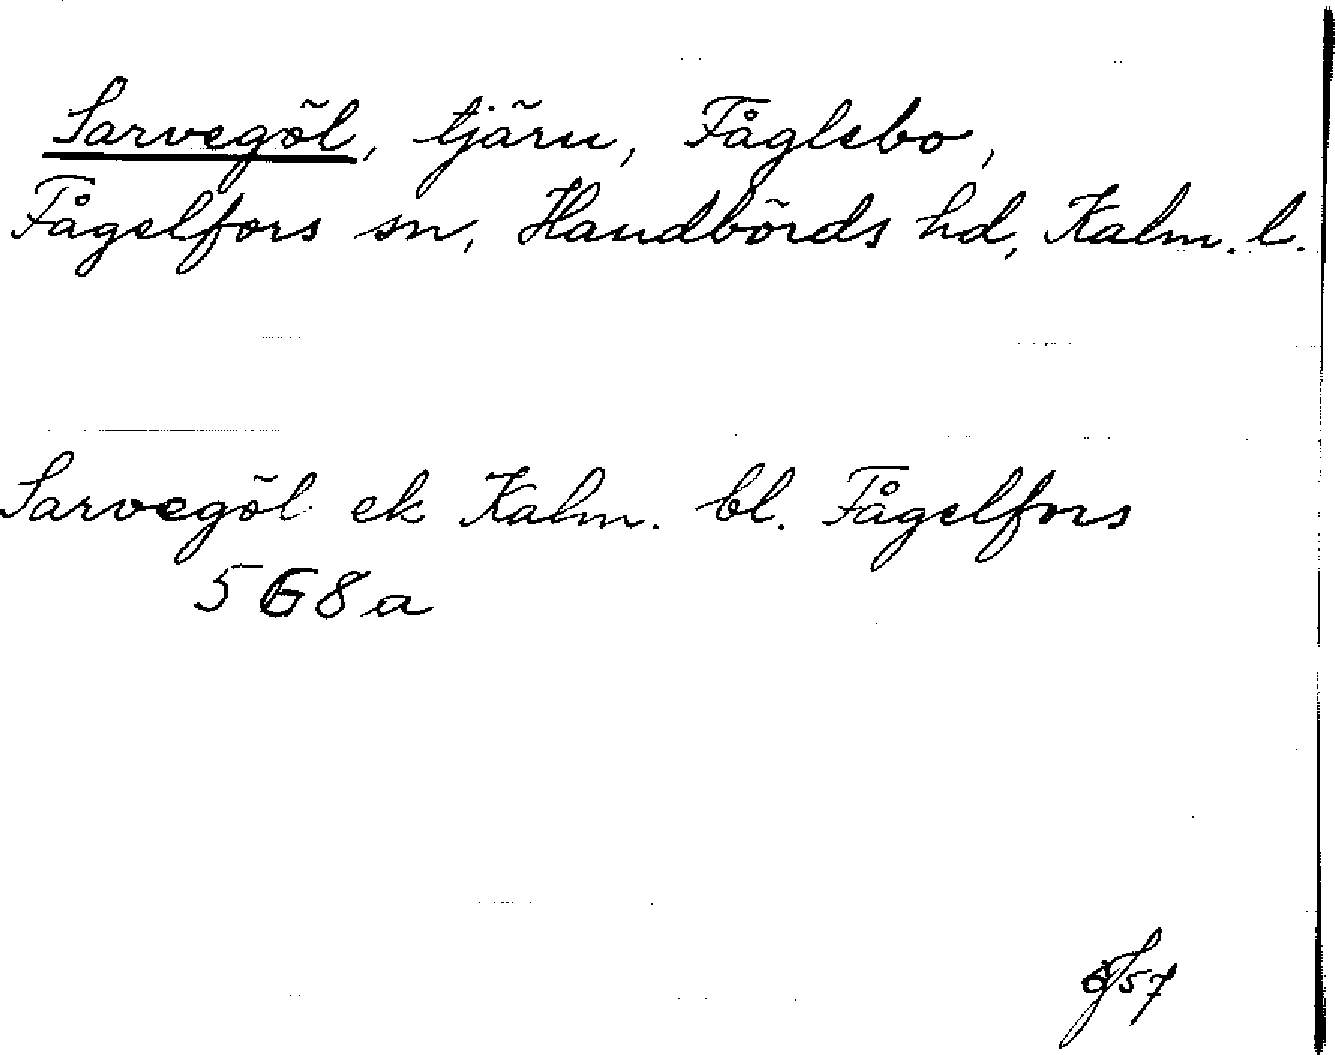 Sarvegöl, tjärn, Fåglebo,
Fågelfors sn, Handbörds hd, Kalm. l.
Sarvegöl ek Kalm. bl. Fågelfors
5G8a
57